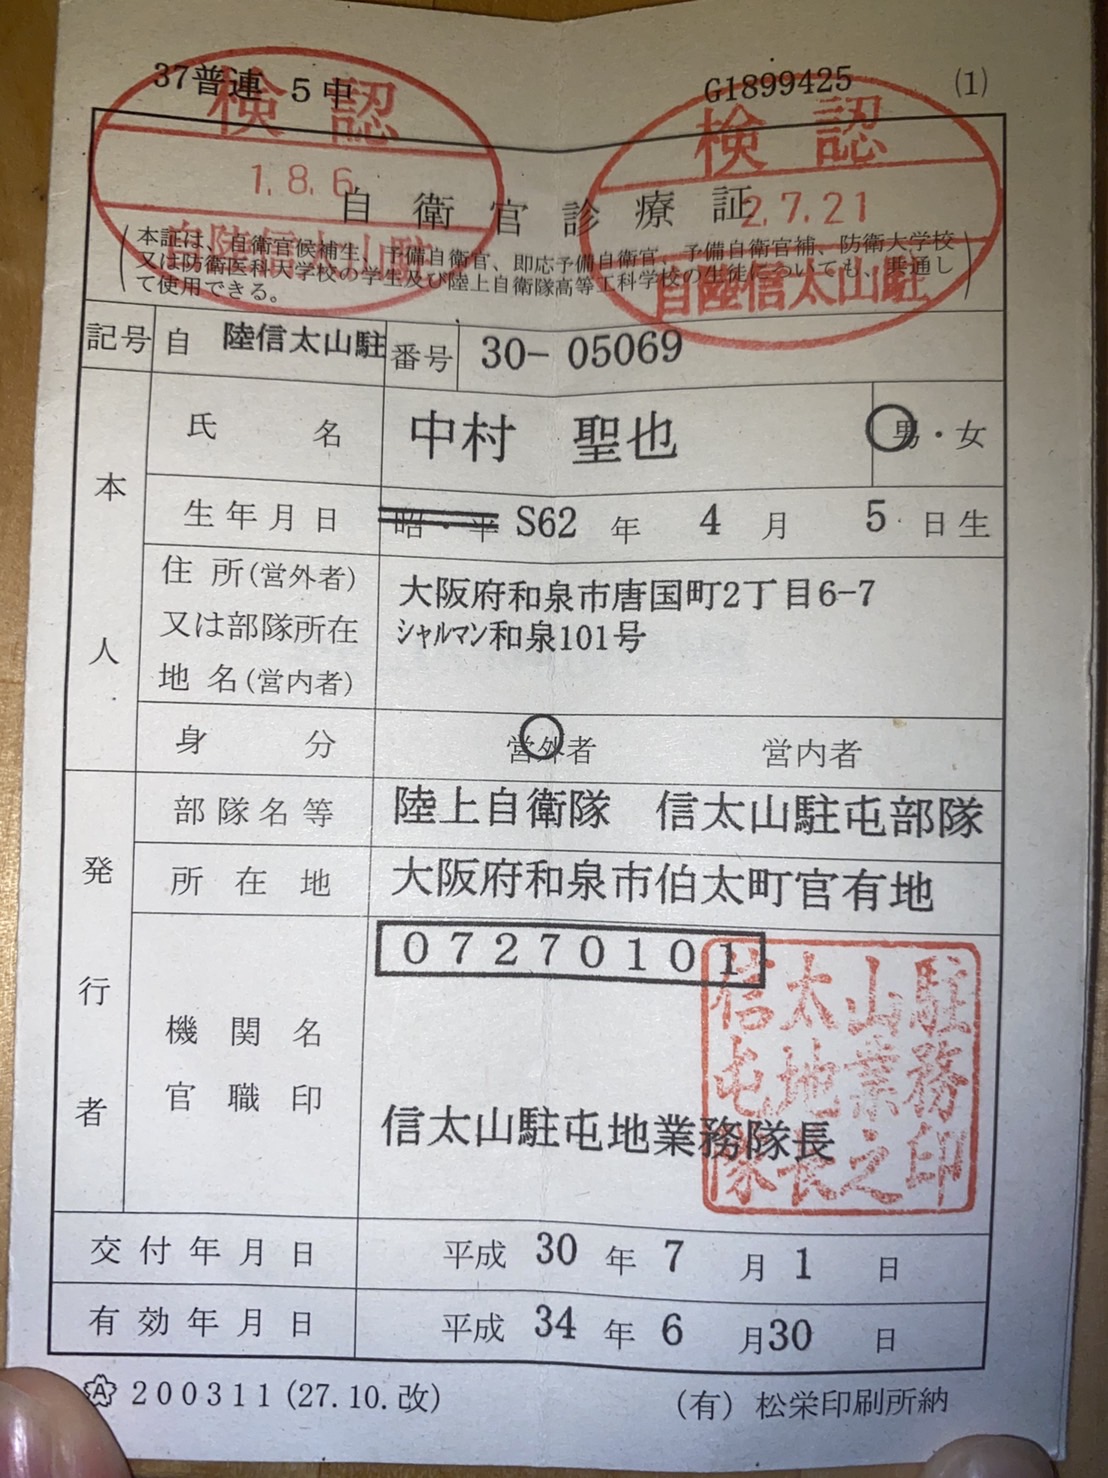 37普連 5中 G1899425 (1)
検認
1.8.6
自陸信太山駐
検認
2.7.21
自陸信太山駐
自衛官診療証
(本証は、自衛官候補生、予備自衛官、即応予備自衛官、予備自衛官補、防衛大学校
又は防衛医科大学校の学生及び陸上自衛隊高等工科学校の生徒についても、共通し
て使用できる。)
記号 自 陸信太山駐 番号 30-05069
本人
氏名 中村 聖也 男・女
生年月日 昭・平 S62年 4月 5日生
住所(営外者) 大阪府和泉市唐国町2丁目6-7
又は部隊所在 シャルマン和泉101号
地名(営内者)
身分 営外者 営内者
発行者
部隊名等 陸上自衛隊 信太山駐屯部隊
所在地 大阪府和泉市伯太町官有地
07270101
機関名
官職印
信太山駐屯地業務隊長
信太山駐
屯地業務
隊長之印
交付年月日 平成 30年 7月 1日
有効年月日 平成 34年 6月30日
A 200311(27.10.改) (有)松栄印刷所納